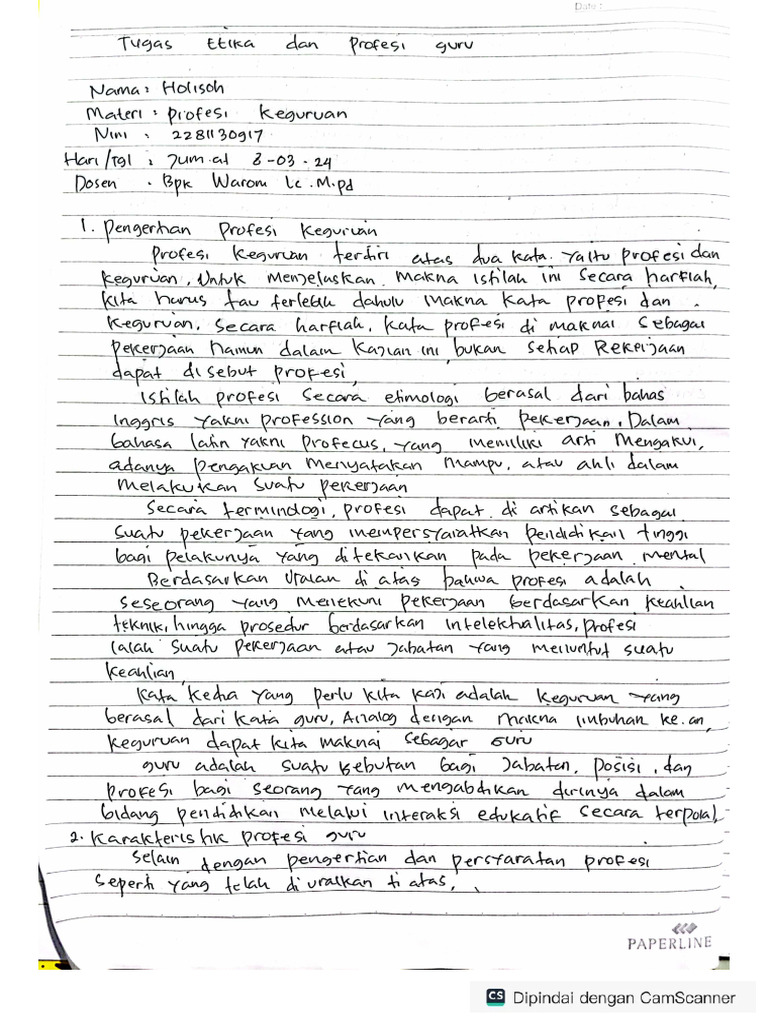 Date :
Tugas Etika dan Profesi guru
Nama : Holisoh
Materi : Profesi Keguruan
Nim : 2281130917
Hari /tgl : Jum.at 8-03-24
Dosen . Bpk Warom Lc. M.pd
1. Pengertian Profesi Keguruan
Profesi Keguruan terdiri atas dua kata. Yaitu profesi dan
Keguruan, Untuk Menjelaskan Makna istilah ini Secara harfiah,
Kita harus tau terlebih dahulu makna kata profesi dan
Keguruan. Secara harfiah, kata profesi di maknai sebagai
Pekerjaan Namun dalam Kajian ini, bukan setiap Rekerjaan
dapat di sebut profesi,
Istilah profesi Secara etimologi berasal dari bahas
Inggris Yakni profession Yang berarti Pekerjaan. Dalam
bahasa latin Yakni profecus, yang memiliki arti Mengakui,
adanya Pengakuan Menyatakan Mampu, atau ahli dalam
Melakukan Suatu pekerjaan
Secara terminologi, profesi dapat di artikan sebagai
Suatu pekerjaan Yang mempersyaratkan Pendidikan tinggi
bagi pelakunya Yang ditekankan pada pekerjaan mental
Berdasarkan Uraian di atas bahwa profesi adalah
Seseorang Yang Menekuni Pekerjaan berdasarkan Keahlian
teknik, hingga prosedur berdasarkan intelektualitas, Profesi
Ialah Suatu Pekerjaan atau Jabatan Yang menuntut suatu
Keahlian,
Kata Kedua Yang Perlu Kita Kaji adalah Keguruan Yang
berasal dari Kata guru, Analog dengan Makna imbuhan ke.an,
Keguruan dapat kita maknai sebagai Guru
guru adalah Suatu Sebutan bagi Jabatan, Posisi, dan
Profesi bagi Seorang Yang mengabdikan dirinya dalam
bidang Pendidikan Melalui interaksi edukatif Secara terpola,
2. Karakteristik profesi guru
Selain dengan pengertian dan persyaratan profesi
Seperti Yang telah di uraikan ti atas,
PAPERLINE
CS Dipindai dengan CamScanner